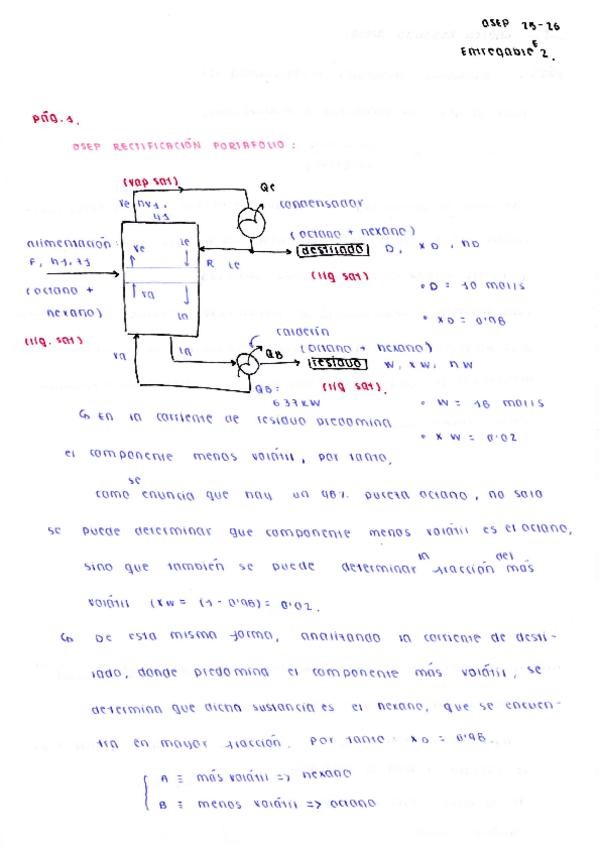 OSEP 25-26
Entregable E2.
pág. 1.
OSEP RECTIFICACIÓN PORTAFOLIO:
(vap sat)
Qc
condensador
Ve, hv1,
y1
(octano + hexano)
alimentación:
destilado D, xD, hD
F, h1, z1
Ve Le
R Le
(líq sat)
(octano +
Va La
• D = 10 mol/s
hexano)
• xD = 0'98
(líq. sat)
calderín
Va La
QB
(octano + hexano)
residuo W, xW, hW
QB:
(líq sat).
637 kW
• W = 18 mol/s
↳ En la corriente de residuo predomina
• xW = 0.02
el componente menos volátil, por tanto,
como se enuncia que hay un 98% pureza octano, no solo
se puede determinar que componente menos volátil es el octano,
sino que también se puede determinar la fracción del más
volátil (xW = (1 - 0'98) = 0'02.
↳ De esta misma forma, analizando la corriente de desti-
lado, donde predomina el componente más volátil, se
determina que dicha sustancia es el hexano, que se encuen-
tra en mayor fracción. Por tanto: xD = 0'98.
A ≡ más volátil => hexano
B ≡ menos volátil => octano